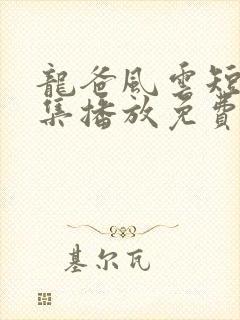 龍爸風雲短
集播放免費
基尔瓦